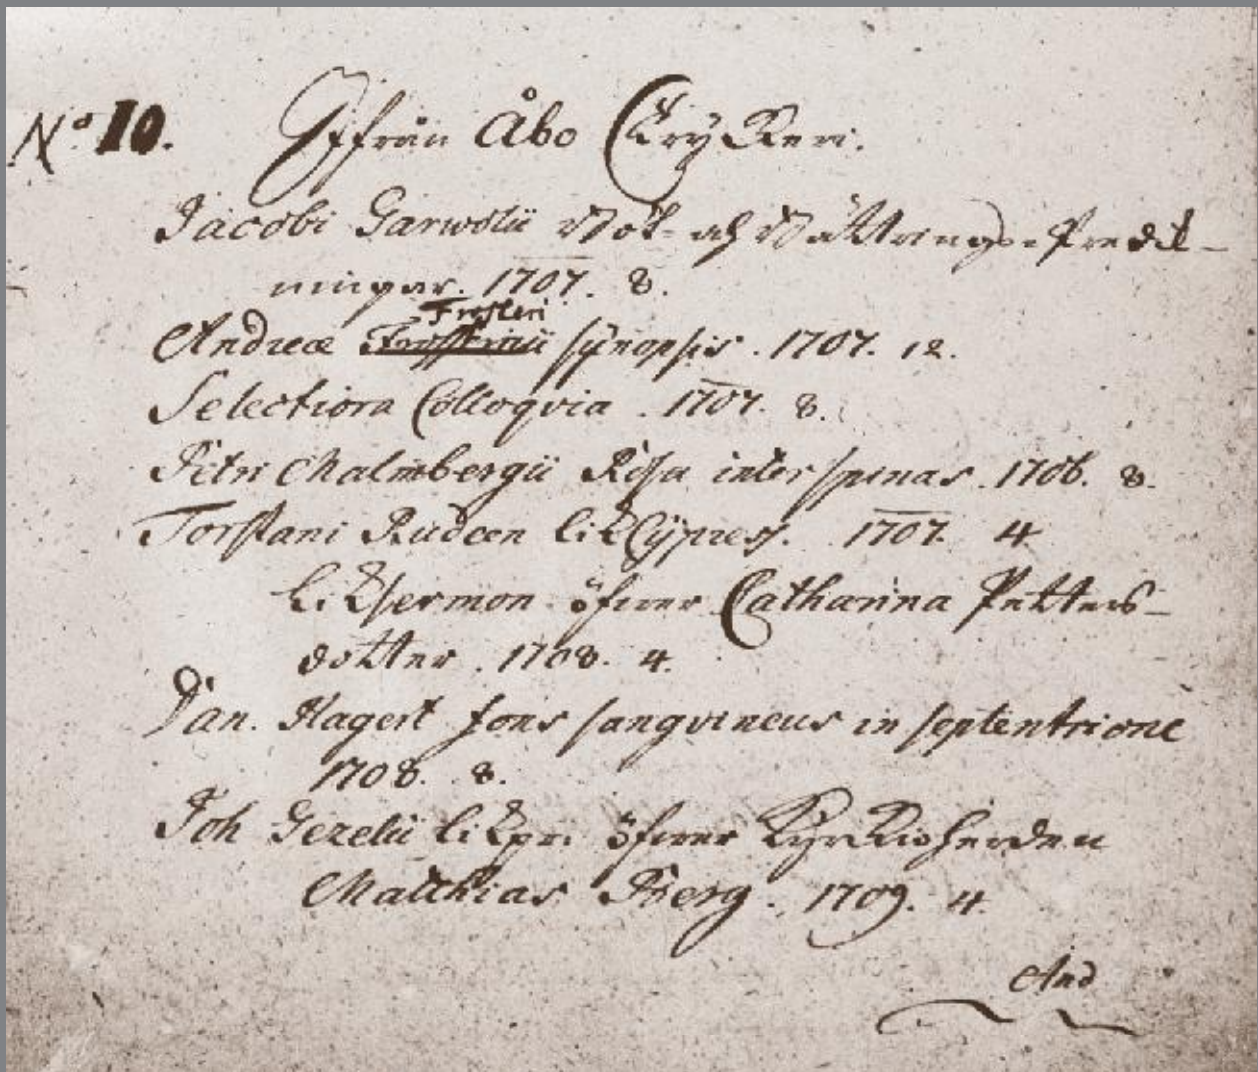 N:o 10. Iffrån Åbo Tryckeri.
Jacobi Garwolii Böt- och Bättrings-Predik-
ningar. 1707. 8.
Frosteri
Andreæ synopsis. 1707. 12.
Selectiora Colloqvia. 1707. 8.
Petri Malmbergii Rosa inter spinas. 1706. 8.
Torstani Rudeen lik Cypress. 1707. 4
liksermon öfwer Catharina Petters-
dotter. 1708. 4.
Dan. Hagert fons sangvineus in septentrione
1708. 8.
Joh Gezelii likpr: öfwer Kyrkioherden
Matthias Berg. 1709. 4.
And